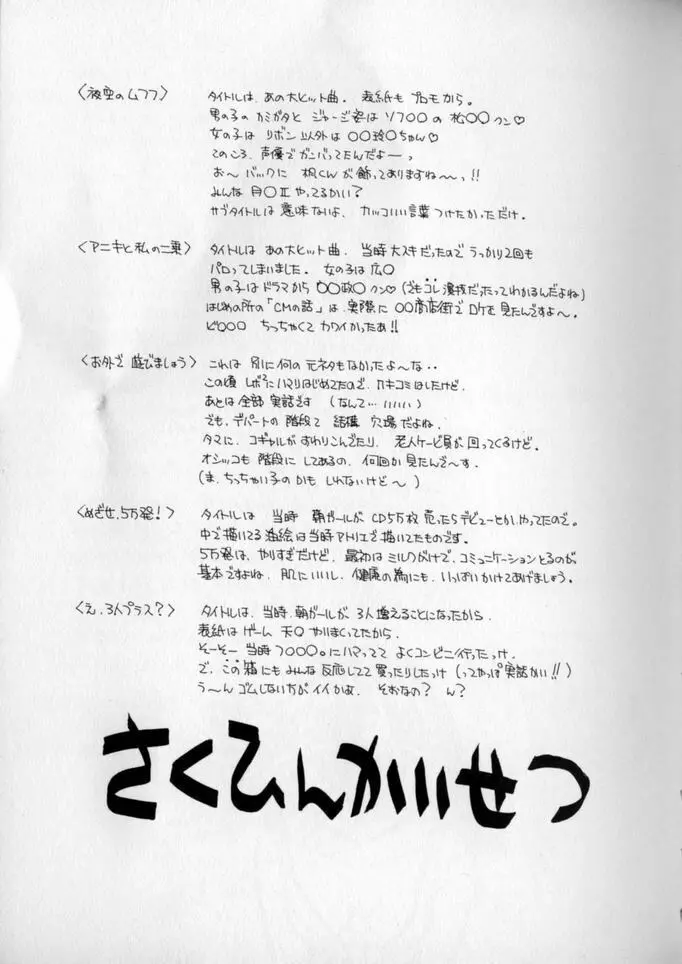 〈夜空のムフフ〉 タイトルは、あの大ヒット曲。表紙も プロモから。
男の子のカミガタと ジャージ姿は ソフ〇〇の 松〇〇クン♡
女の子は リボン以外は 〇〇玲〇ちゃん♡
このころ、声優でガンバってたんだよーっ
お〜 バックに 楓くんが 飾ってありますね〜っ!!
みんな 月〇Ⅱ やってるかい?
サブタイトルは 意味ないよ、カッコいい言葉 つけたかっただけ。
〈アニキと私の二乗〉 タイトルは あの大ヒット曲、当時大スキだったので うっかり2回も
パロってしまいました。女の子は 広〇
男の子はドラマから 〇〇政〇クン♡(でもコレ 演技だったってわかるんだよね)
はじめの所の「CMの話」は、実際に 〇〇商店街で ロケを 見たんですよ〜。
ピ〇〇〇 ちっちゃくて カワイかったぁ!!
〈お外で 遊びましょう〉 これは 別に何の 元ネタもなかったよ〜な‥
この頃 レボ²にハマリはじめてたので、カキコミはしたけど、
あとは全部 実話です (なんて… いいい)
でも、デパートの 階段て 結構 穴場だよね。
タマに、コギャルが すわりこんでたり、老人ケービ員が 回ってくるけど。
オシッコも 階段に してあるの、何回か 見たんで〜す。
(ま、ちっちゃい子の かも しれないけど〜)
〈めざせ、5万発!〉 タイトルは 当時 朝ガールが CD5万枚 売ったら デビューとか、やってたので。
中で描いてる 油絵は 当時アトリエで 描いてたものです。
5万発は、やりすぎだけど、最初は ミルクがけで、コミュニケーションとるのが
基本ですよね、肌にいいし、健康の為にも、いっぱいかけてあげましょう。
〈え、3人プラス?〉 タイトルは、当時、朝ガールが、3人増えることになったから
表紙は ゲーム 天〇 やりまくってたから
そーそー 当時 フ〇〇〇。にハマってて よくコンビニ行ったっけ
で、この箱にも みんな 反応してて 買ったりしたっけ (ってやっぱ実話かい!!)
う〜ん ゴムしない方が イイかよ、そおなの? ん?
さくひんかいせつ